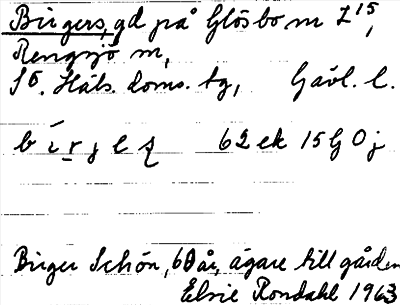 Birgers, gd på Glösbo m Z 15,
Rengsjö m,
SÖ. Häls. doms. tg, Gävl. l.
62 ek 15 G 0 j
Birger Schön, 60 år, ägare till gården
Elsie Rondahl 1963